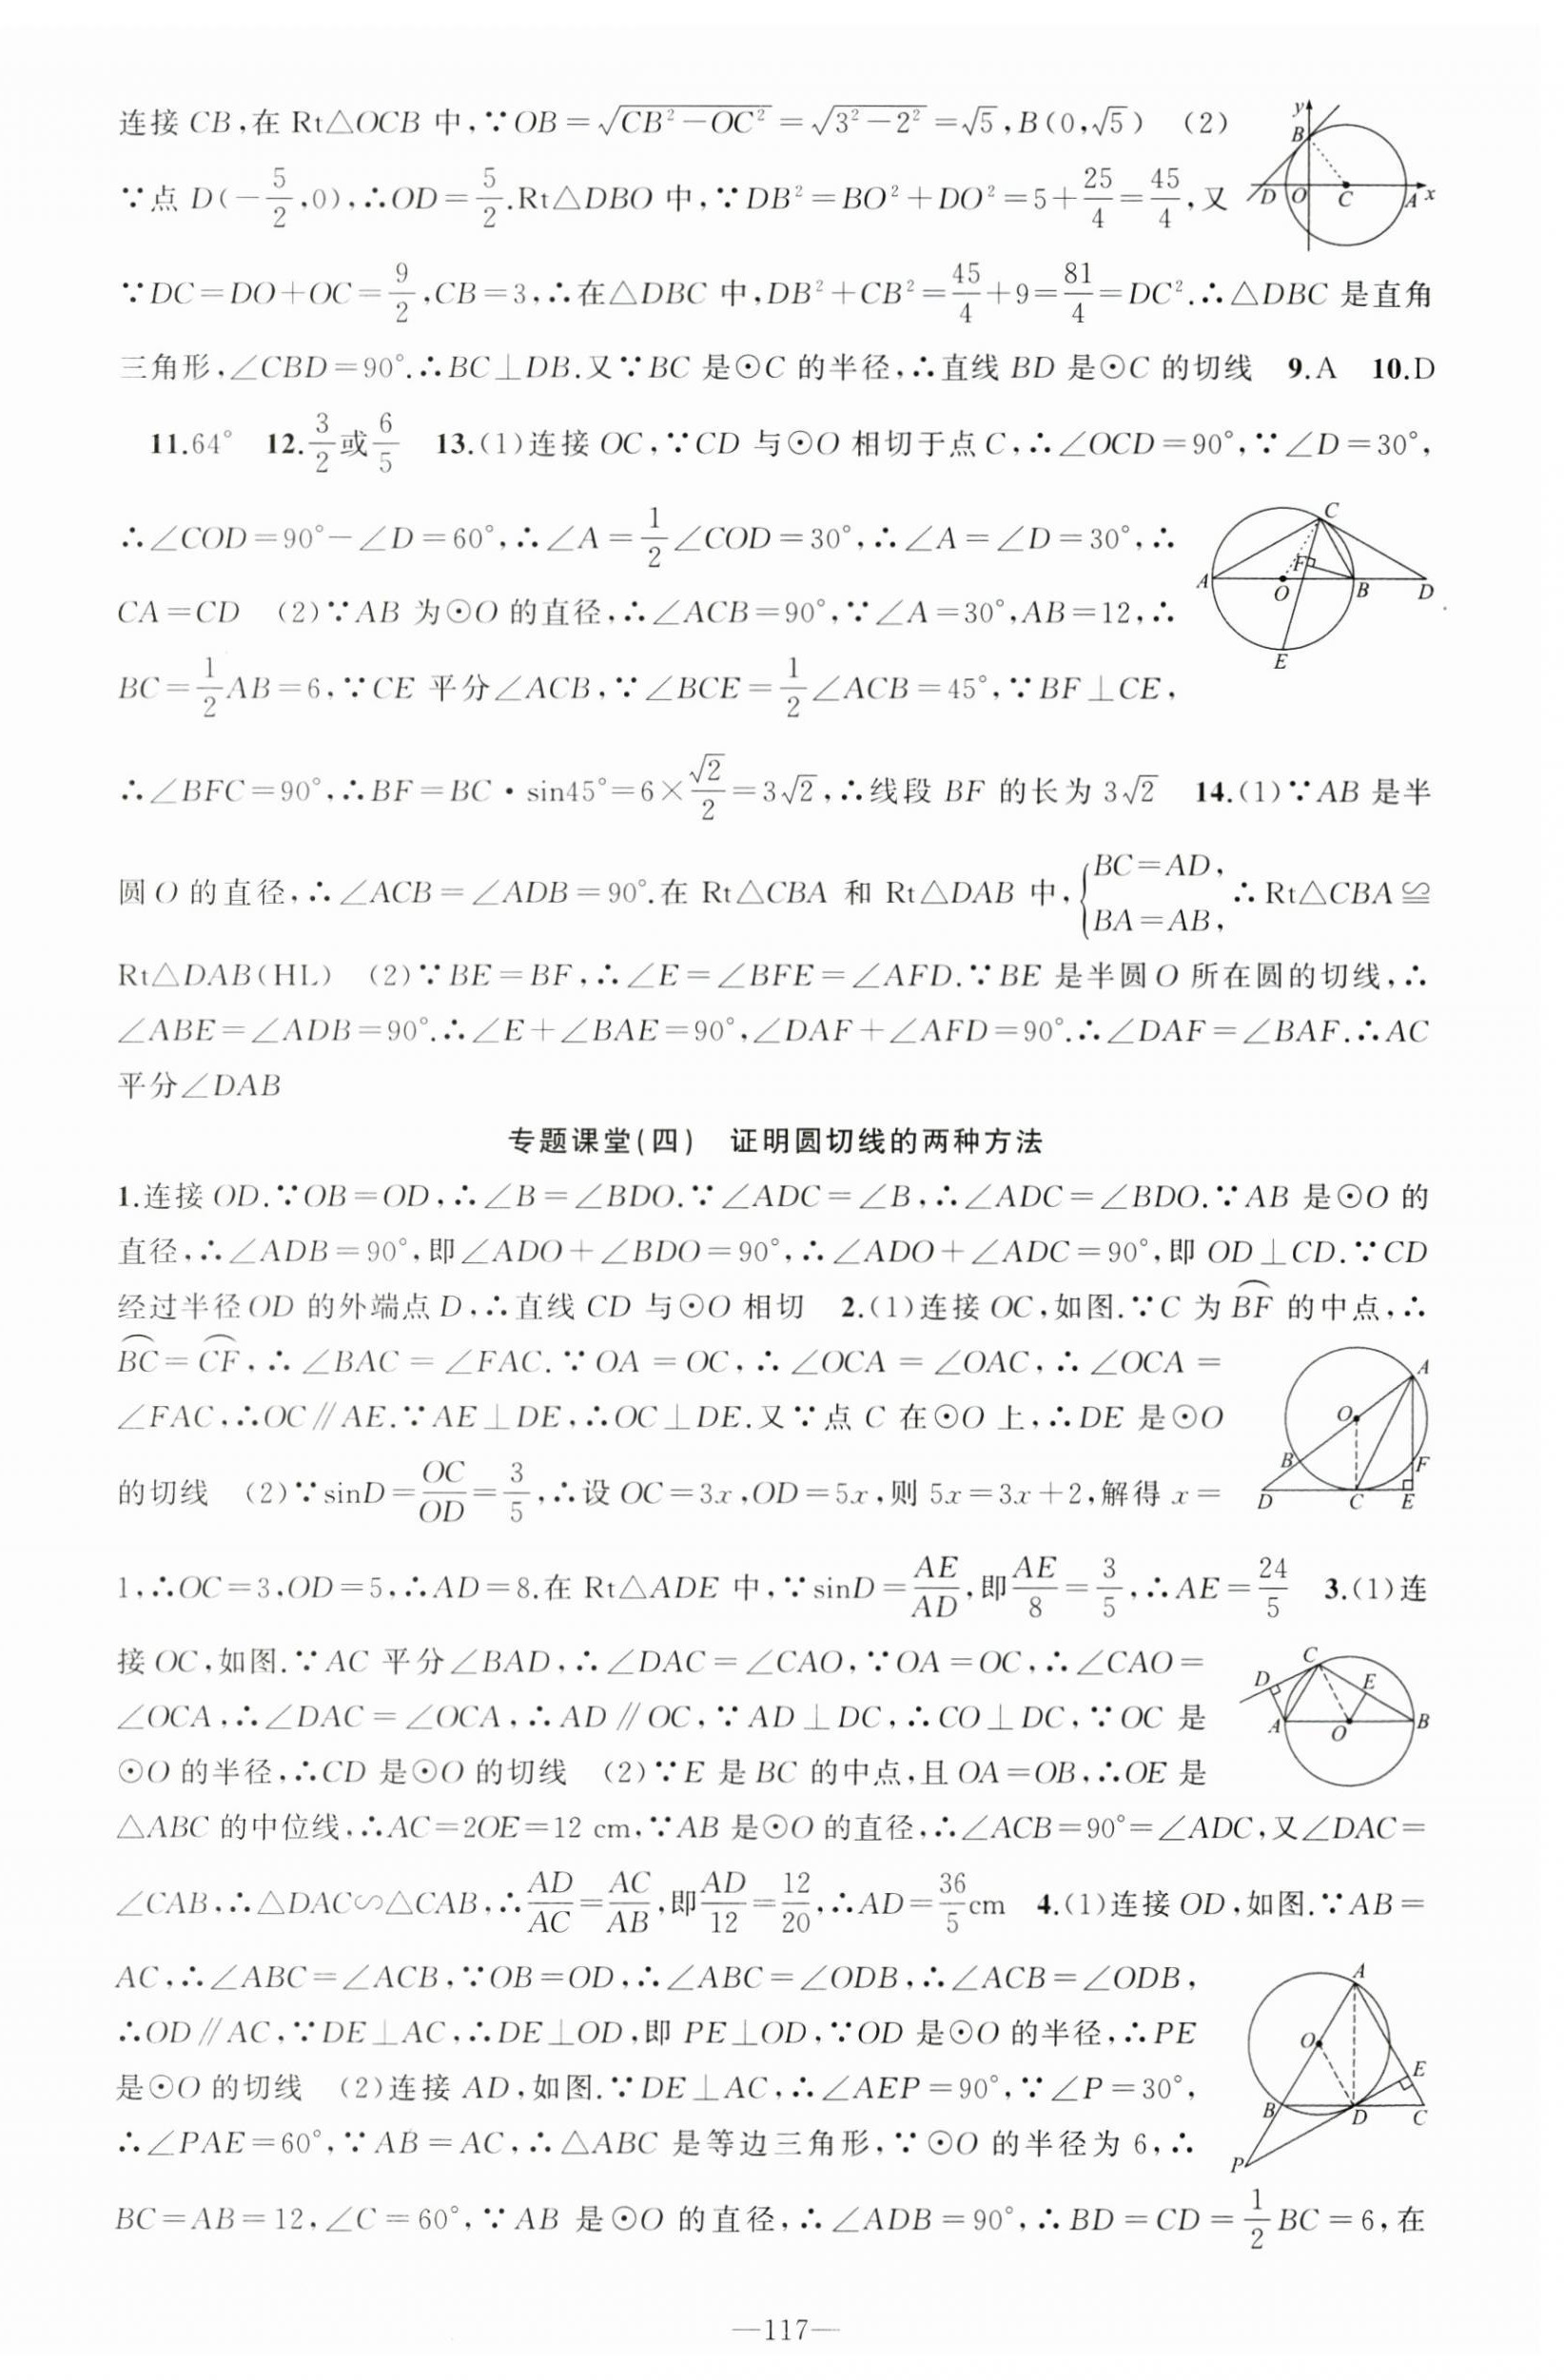 连接 CB,在 Rt△OCB 中,∵OB=√(CB²-OC²)=√(3²-2²)=√5,B(0,√5) (2)
∵点 D(-5/2,0),∴OD=5/2.Rt△DBO 中,∵DB²=BO²+DO²=5+25/4=45/4,又
∵DC=DO+OC=9/2,CB=3,∴在△DBC 中,DB²+CB²=45/4+9=81/4=DC².∴△DBC 是直角
三角形,∠CBD=90°.∴BC⊥DB.又∵BC 是⊙C 的半径,∴直线 BD 是⊙C 的切线 9.A 10.D
11.64° 12.3/2或6/5 13.(1)连接 OC,∵CD 与⊙O 相切于点 C,∴∠OCD=90°,∵∠D=30°,
∴∠COD=90°-∠D=60°,∴∠A=1/2∠COD=30°,∴∠A=∠D=30°,∴
CA=CD (2)∵AB 为⊙O 的直径,∴∠ACB=90°,∵∠A=30°,AB=12,∴
BC=1/2AB=6,∵CE 平分∠ACB,∵∠BCE=1/2∠ACB=45°,∵BF⊥CE,
∴∠BFC=90°,∴BF=BC·sin45°=6×√2/2=3√2,∴线段 BF 的长为 3√2 14.(1)∵AB 是半
圆 O 的直径,∴∠ACB=∠ADB=90°.在 Rt△CBA 和 Rt△DAB 中,{BC=AD, BA=AB, ∴Rt△CBA≌
Rt△DAB(HL) (2)∵BE=BF,∴∠E=∠BFE=∠AFD.∵BE 是半圆 O 所在圆的切线,∴
∠ABE=∠ADB=90°.∴∠E+∠BAE=90°,∠DAF+∠AFD=90°.∴∠DAF=∠BAF.∴AC
平分∠DAB
专题课堂(四) 证明圆切线的两种方法
1.连接 OD.∵OB=OD,∴∠B=∠BDO.∵∠ADC=∠B,∴∠ADC=∠BDO.∵AB 是⊙O 的
直径,∴∠ADB=90°,即∠ADO+∠BDO=90°,∴∠ADO+∠ADC=90°,即 OD⊥CD.∵CD
经过半径 OD 的外端点 D,∴直线 CD 与⊙O 相切 2.(1)连接 OC,如图.∵C 为 B͡F 的中点,∴
B͡C=C͡F,∴∠BAC=∠FAC.∵OA=OC,∴∠OCA=∠OAC,∴∠OCA=
∠FAC,∴OC∥AE.∵AE⊥DE,∴OC⊥DE.又∵点 C 在⊙O 上,∴DE 是⊙O
的切线 (2)∵sinD=OC/OD=3/5,∴设 OC=3x,OD=5x,则 5x=3x+2,解得 x=
1,∴OC=3,OD=5,∴AD=8.在 Rt△ADE 中,∵sinD=AE/AD,即AE/8=3/5,∴AE=24/5 3.(1)连
接 OC,如图.∵AC 平分∠BAD,∴∠DAC=∠CAO,∵OA=OC,∴∠CAO=
∠OCA,∴∠DAC=∠OCA,∴AD∥OC,∵AD⊥DC,∴CO⊥DC,∵OC 是
⊙O 的半径,∴CD 是⊙O 的切线 (2)∵E 是 BC 的中点,且 OA=OB,∴OE 是
△ABC 的中位线,∴AC=2OE=12 cm,∵AB 是⊙O 的直径,∴∠ACB=90°=∠ADC,又∠DAC=
∠CAB,∴△DAC∽△CAB,∴AD/AC=AC/AB,即AD/12=12/20,∴AD=36/5cm 4.(1)连接 OD,如图.∵AB=
AC,∴∠ABC=∠ACB,∵OB=OD,∴∠ABC=∠ODB,∴∠ACB=∠ODB,
∴OD∥AC,∵DE⊥AC,∴DE⊥OD,即 PE⊥OD,∵OD 是⊙O 的半径,∴PE
是⊙O 的切线 (2)连接 AD,如图.∵DE⊥AC,∴∠AEP=90°,∵∠P=30°,
∴∠PAE=60°,∵AB=AC,∴△ABC 是等边三角形,∵⊙O 的半径为 6,∴
BC=AB=12,∠C=60°,∵AB 是⊙O 的直径,∴∠ADB=90°,∴BD=CD=1/2BC=6,在
y
B
D O C A x
C
F
A O B D
E
A
O
B F
D C E
C
D E
A O B
A
O
E
B D C
P
—117—